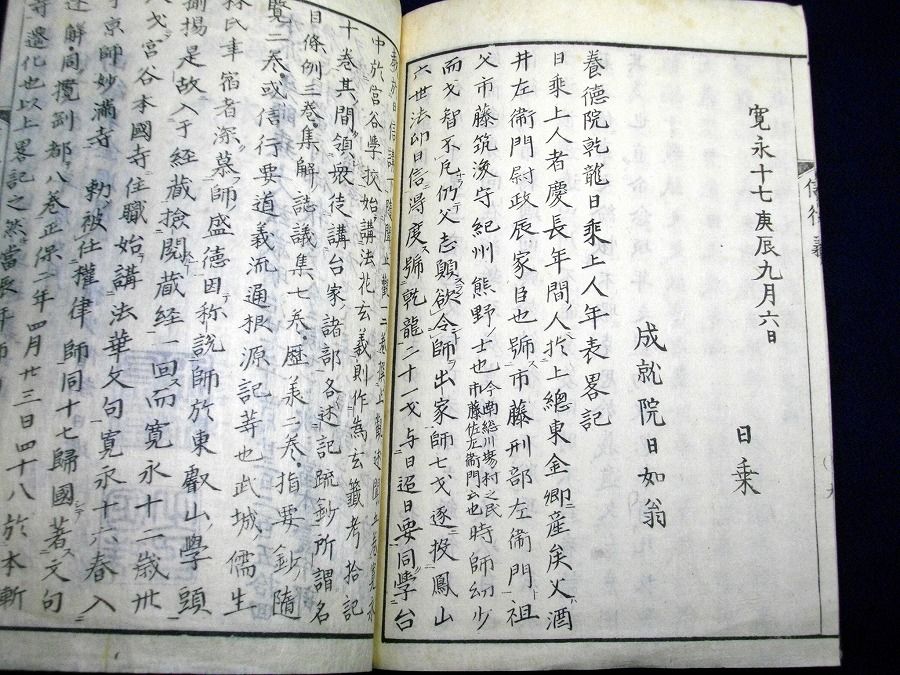 寛永十七庚辰九月六日
日乗
成就院日如翁
養徳院乾龍日乗上人年表畧記
日乗上人者慶長年間人於上總東金郷産矣父酒
井左衞門尉政辰家臣也號市藤刑部左衞門祖
父市藤筑後守紀州熊野士也今南総川場村之民市藤佐左衞門云也時師幼少
而才智不凡仍父志願欲令師出家師七才逐投鳳山
六世法印日信得度號乾龍二十一才与日迢日要同學台
中於宮谷學校始講法花玄義則作為玄籤考拾記
十巻其間領衆徒講台家諸部各述記疏鈔所謂名
目條例三巻集解誌議集七巻歴羕二巻指要鈔隨
覽二巻或信行要道義流通根源記䓁也武城儒生
林氏事宿者深慕師盛德因称説師於東叡山學頭
捌揚是故入于経蔵撿閲蔵経一回而寛永十二歳卅
八才宮谷本國寺住職始講法華文句寛永十六春入
京師妙滿寺勅被任權律師同十七歸國著文句
難解同攬𠜇都八巻正保二年四月廿三日四十八於本
寺遷化也以上畧記之然當